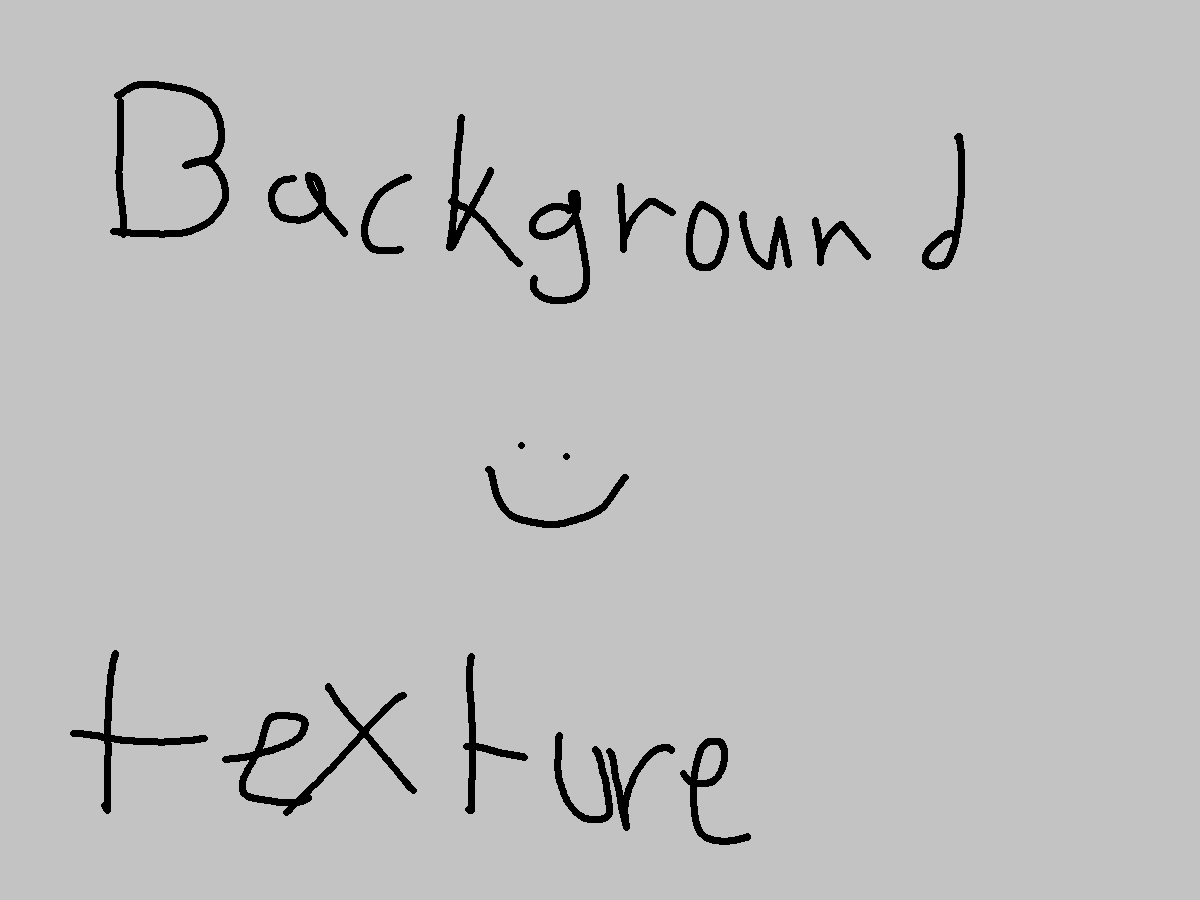 Background
texture